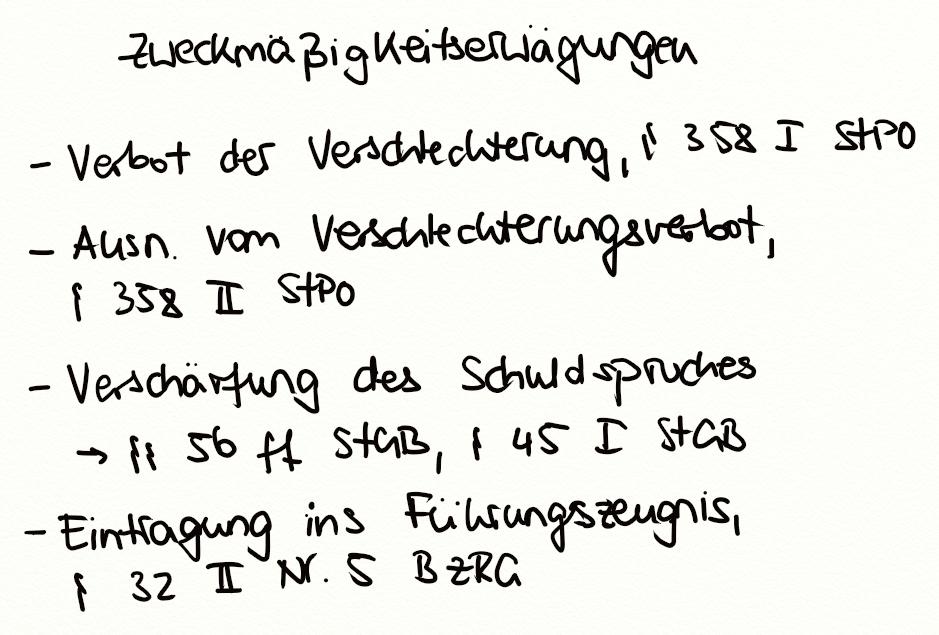 Zweckmäßigkeitserwägungen
- Verbot der Verschlechterung, § 358 I StPO
- Ausn. vom Verschlechterungsverbot,
§ 358 II StPO
- Verschärfung des Schuldspruches
→ §§ 56 ff StGB, § 45 I StGB
- Eintragung ins Führungszeugnis,
§ 32 II Nr. 5 BZRG